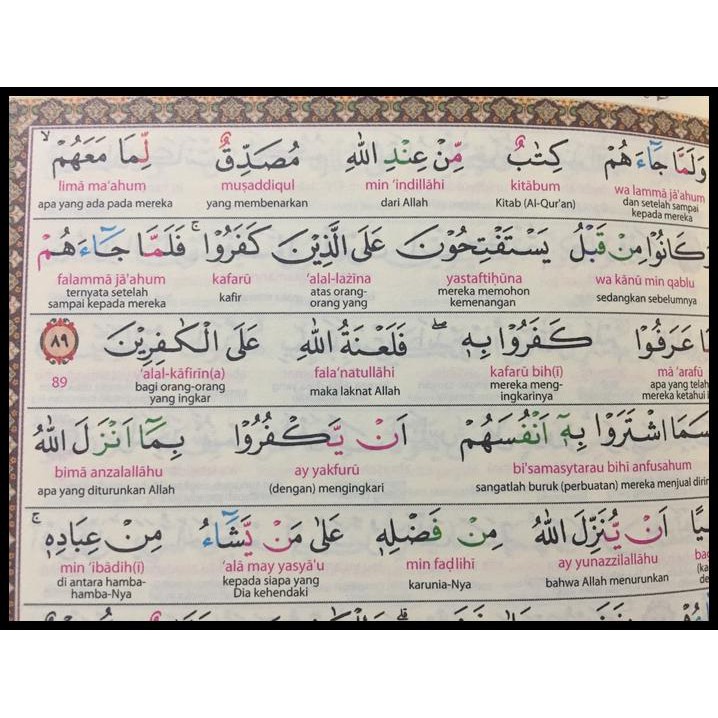 وَلَمَّا جَآءَهُمْ كِتٰبٌ مِّنْ عِنْدِ اللّٰهِ مُصَدِّقٌ لِّمَا مَعَهُمْۙ
wa lammā jā'ahum kitābum min 'indillāhi muṣaddiqul limā ma'ahum
dan setelah sampai kepada mereka Kitab (Al-Qur'an) dari Allah yang membenarkan apa yang ada pada mereka
وَكَانُوْا مِنْ قَبْلُ يَسْتَفْتِحُوْنَ عَلَى الَّذِيْنَ كَفَرُوْاۚ فَلَمَّا جَآءَهُمْ
wa kānū min qablu yastaftiḥūna 'alal-lażīna kafarū falammā jā'ahum
sedangkan sebelumnya mereka memohon kemenangan atas orang-orang yang kafir ternyata setelah sampai kepada mereka
عَرَفُوْا كَفَرُوْا بِهٖۖ فَلَعْنَةُ اللّٰهِ عَلَى الْكٰفِرِيْنَ ٨٩
mā 'arafū kafarū bih(ī) fala'natullāhi 'alal-kāfirīn(a) 89
apa yang telah mereka ketahui mereka meng-ingkarinya maka laknat Allah bagi orang-orang yang ingkar
اشْتَرَوْا بِهٖٓ اَنْفُسَهُمْ اَنْ يَّكْفُرُوْا بِمَآ اَنْزَلَ اللّٰهُ
bi'samasytarau bihī anfusahum ay yakfurū bimā anzalallāhu
sangatlah buruk (perbuatan) mereka menjual (dengan) mengingkari apa yang diturunkan Allah
اَنْ يُّنَزِّلَ اللّٰهُ مِنْ فَضْلِهٖ عَلٰى مَنْ يَّشَآءُ مِنْ عِبَادِهٖۚ
ay yunazzilallāhu min faḍlihī 'alā may yasyā'u min 'ibādih(ī)
bahwa Allah menurunkan karunia-Nya kepada siapa yang Dia kehendaki di antara hamba-hamba-Nya